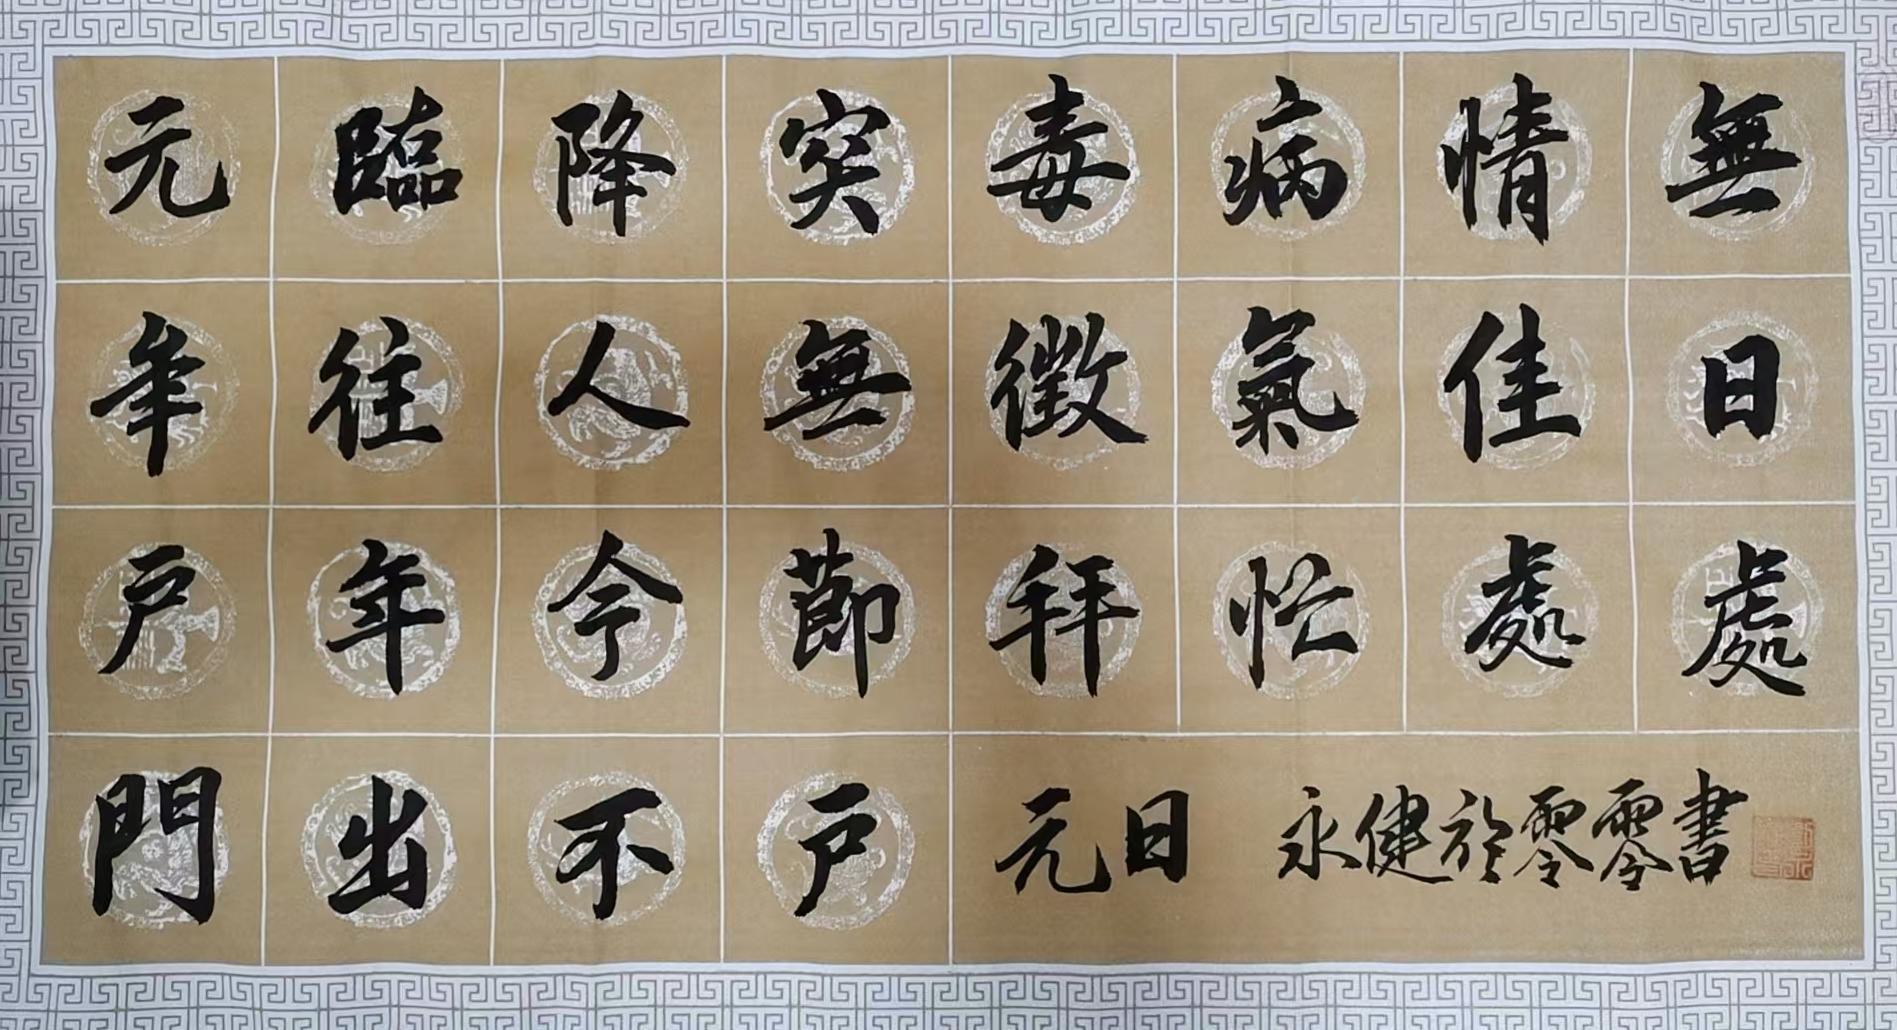 無情病毒突降臨元
日佳氣徵無人往年
處處忙拜節今年戶
戶不出門
元日 永健於零零書